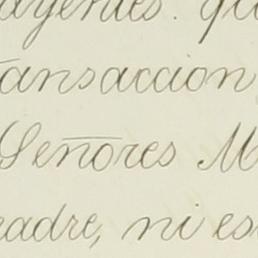 ayentes. qu
ransaccion
Señores M
radre, ni es